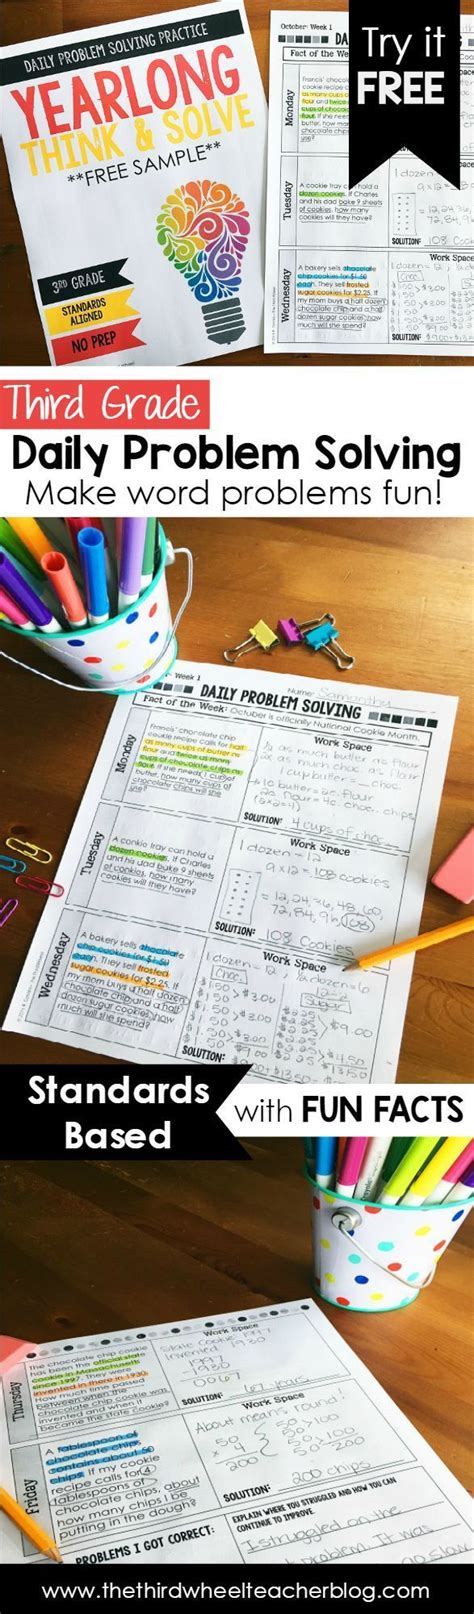 DAILY PROBLEM SOLVING PRACTICE
YEARLONG
THINK & SOLVE
**FREE SAMPLE**
3RD GRADE
STANDARDS
ALIGNED
NO PREP
Try it
FREE
October: Week 1
Fact of the Week:
Monday
Tuesday
A cookie tray can hold a
dozen cookies. If Charles
and his dad bake 9 sheets
of cookies, how many
cookies will they have?
1 dozen =
9 x 12 =
SOLUTION: 108 Cookies
Wednesday
A bakery sells chocolate
chip cookies for $1.50
each. They sell frosted
sugar cookies for $2.25. If
my mom buys a half dozen
chocolate chip and a half
dozen sugar cookies how
much will she spend?
Work Space
SOLUTION:
Third Grade
Daily Problem Solving
Make word problems fun!
Week 1
Name: Samantha
DAILY PROBLEM SOLVING
Fact of the Week: October is officially National Cookie Month.
Monday
Francis' chocolate chip
cookie recipe calls for half
as many cups of butter as
flour and twice as many
cups of chocolate chips as
flour. If she needs 1 cup of
butter, how many cups of
chocolate chips will she
use?
Work Space
½ as much butter as flour
2x as much choc. as flour
1 cup butter = __ choc.
SOLUTION: 4 cups of choc.
Tuesday
A cookie tray can hold a
dozen cookies. If Charles
and his dad bake 9 sheets
of cookies, how many
cookies will they have?
Work Space
1 dozen = 12
9 x 12 = 108 cookies
12, 24, 36, 48, 60,
72, 84, 96, 108
SOLUTION: 108 Cookies
Wednesday
A bakery sells chocolate
chip cookies for $1.50
each. They sell frosted
sugar cookies for $2.25. If
my mom buys a half dozen
chocolate chip and a half
dozen sugar cookies how
much will she spend?
Work Space
SOLUTION:
Standards
Based
with FUN FACTS
Thursday
The chocolate chip cookie
has been the official state
cookie in Massachusetts
since 1997. They were
invented in there in 1930.
How much time passed
between when the
chocolate chip cookie was
invented and when it
became the state cookie?
Work Space
State Cookie 1997
Invented 1930
1997
1930
SOLUTION: 67 years
Friday
A tablespoon of
chocolate chips
contains about 50
chips. If my cookie
recipe calls for 4
tablespoons of
chocolate chips, about
how many chips I be
putting in the dough?
Work Space
About means round!
50
x 4
200
SOLUTION: 200 chips
PROBLEMS I GOT CORRECT:
EXPLAIN WHERE YOU STRUGGLED AND HOW YOU CAN
CONTINUE TO IMPROVE.
I struggled on the
problem. It was
www.thethirdwheelteacherblog.com